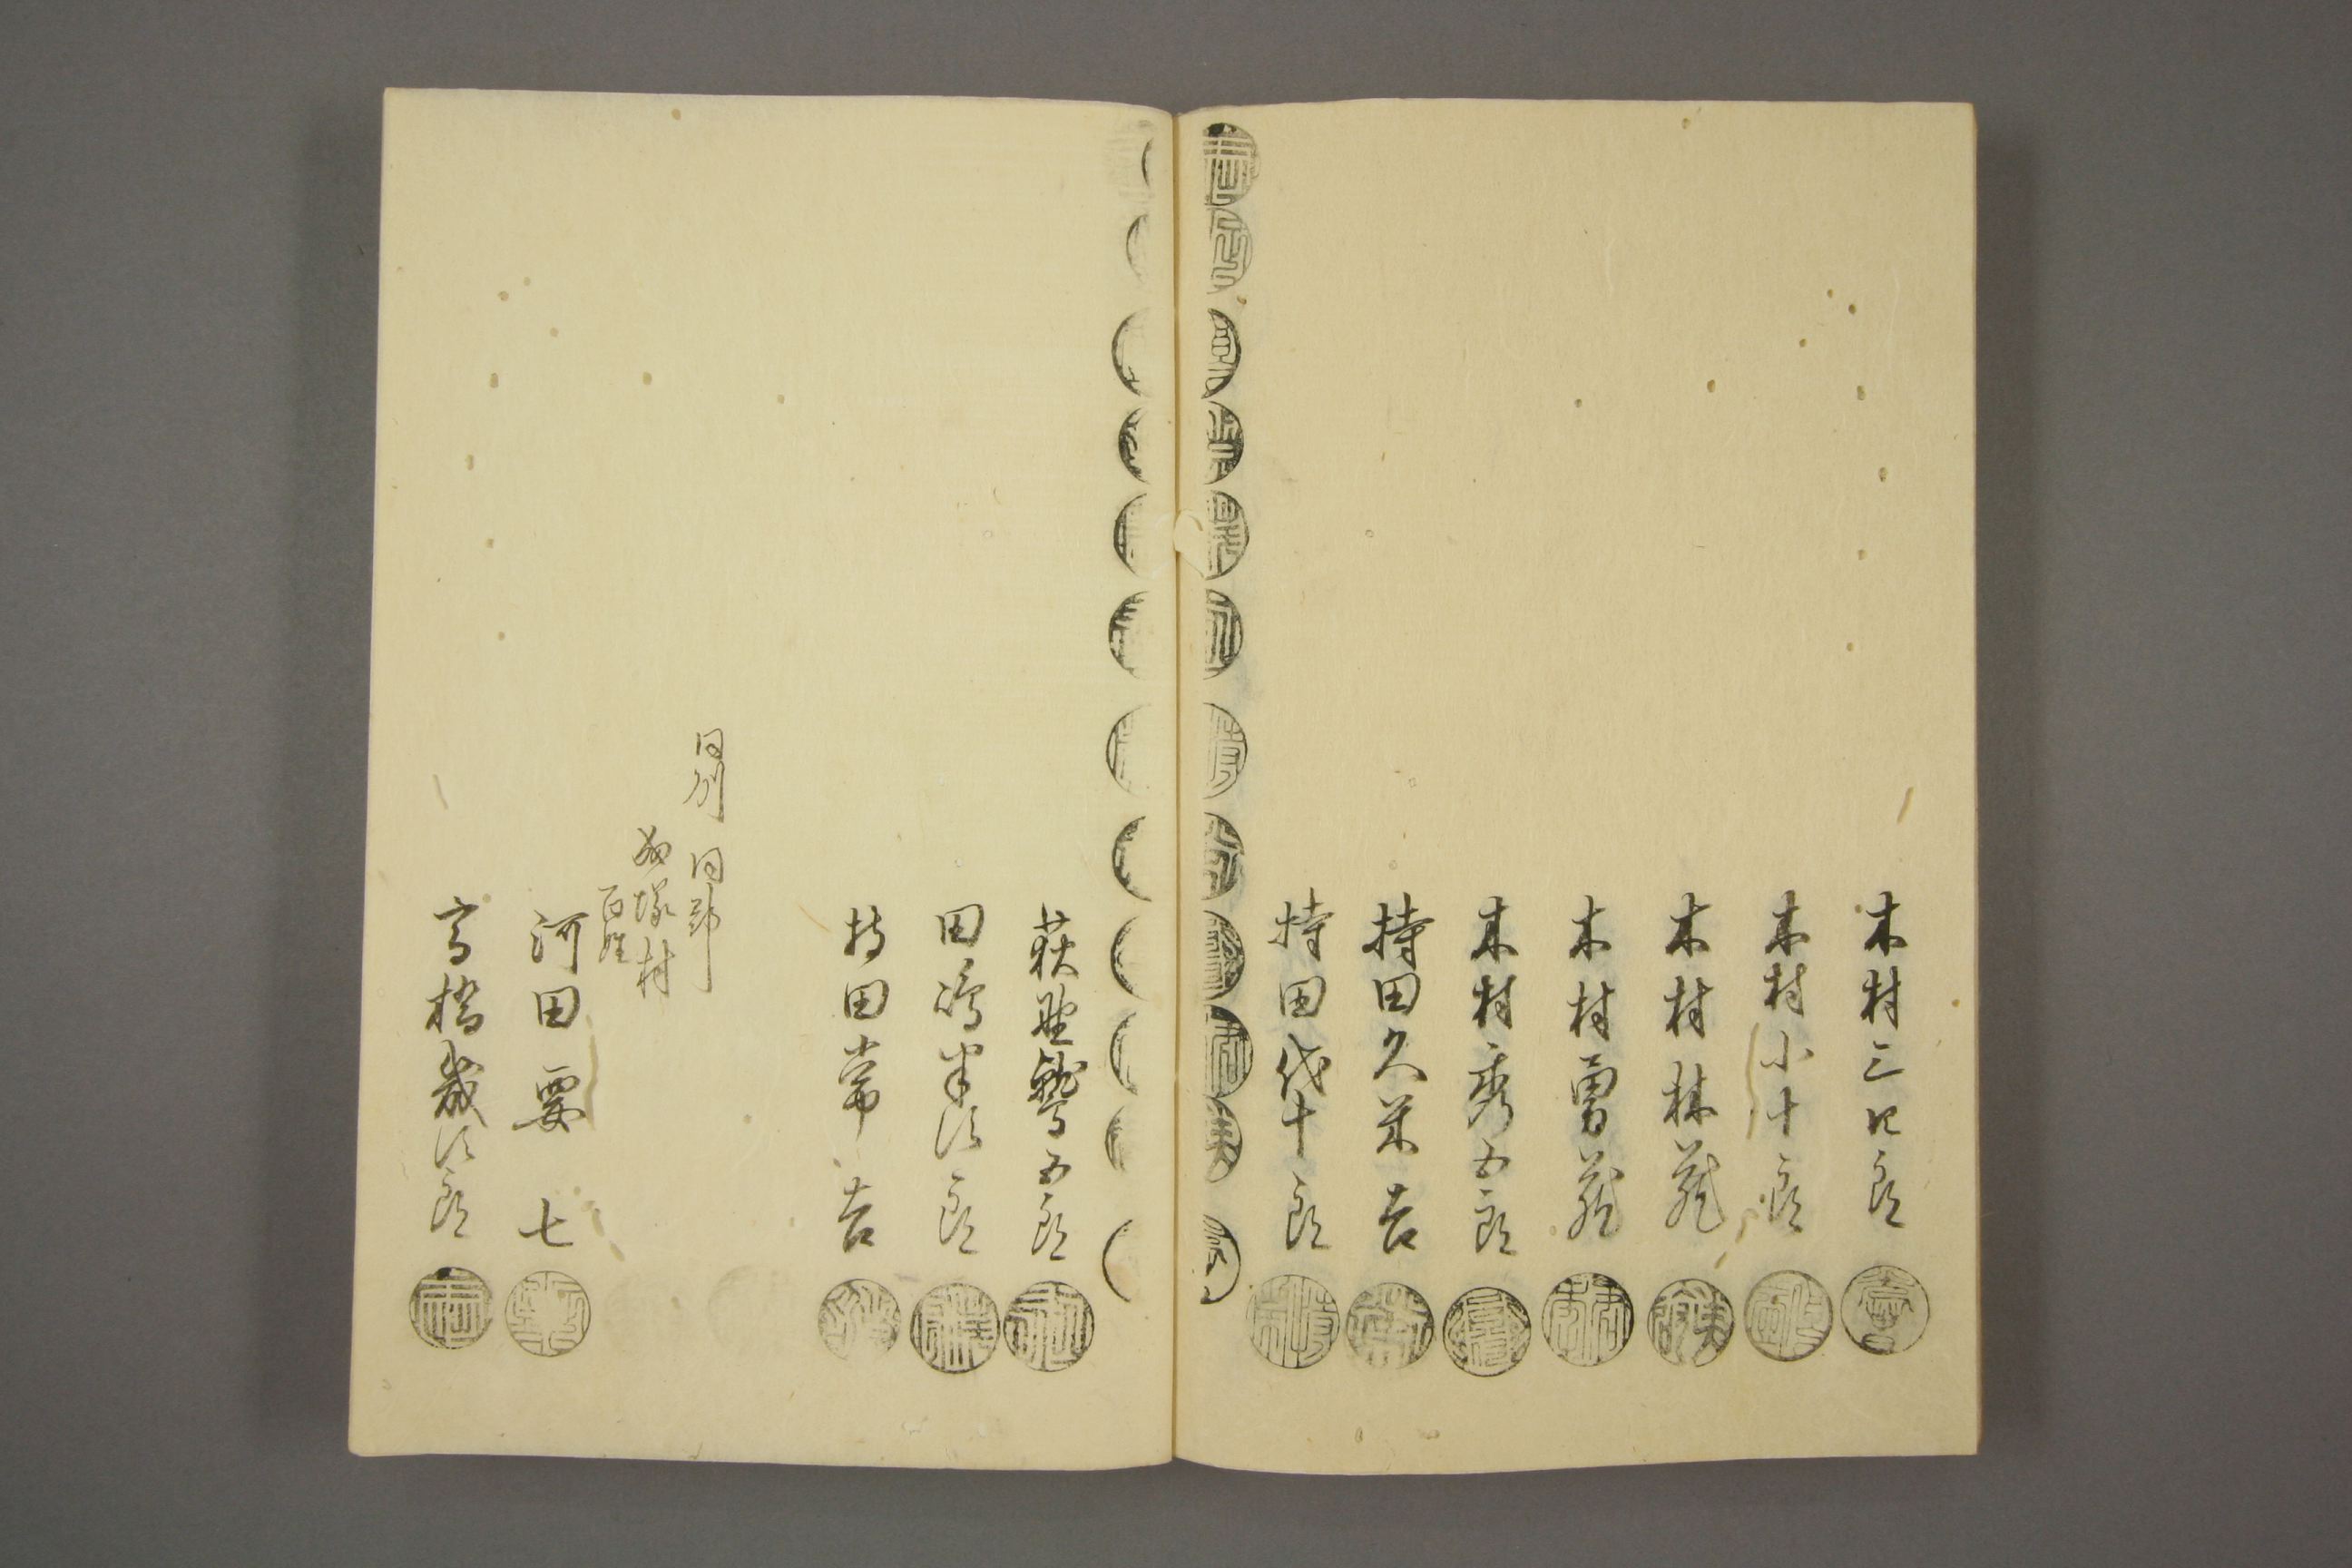 木村三四郎
木村小十郎
木村林蔵
木村勇蔵
木村秀五郎
持田久米吉
持田代十郎
荻野鷲五郎
田嶋半次郎
持田常吉
同州同郡
塚村
百姓
河田要七
高橋歳次郎